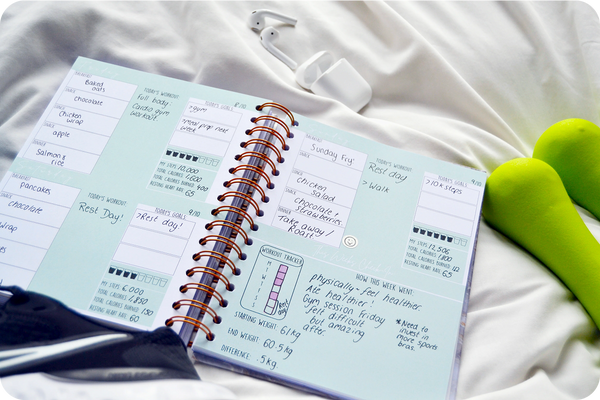 Baked
oats
chocolate
Chicken
wrap
apple
Salmon &
rice
TODAYS WORKOUT
Full body
Cardio gym
workout.
TODAYS GOAL
>gym
>meal prep next
week
MY STEPS 12,000
TOTAL CALORIES
TOTAL CALORIES BURNED 600
RESTING HEART RATE 65
pancakes
chocolate
wrap
TODAYS WORKOUT
Rest Day!
TODAYS GOAL
>Rest day!
MY STEPS 6,000
TOTAL CALORIES
TOTAL CALORIES BURNED 150
RESTING HEART RATE 60
Sunday Fry!
Chicken
Salad
chocolate +
strawberries
Take away /
Roast
TODAYS WORKOUT
Rest day
> Walk
TODAYS GOAL
>10K steps
MY STEPS 12,500
TOTAL CALORIES
TOTAL CALORIES BURNED
RESTING HEART RATE 65
WORKOUT TRACKER
M
T
W
T
F
S
S
Rest
day
STARTING WEIGHT: 61kg
END WEIGHT: 60.5kg
DIFFERENCE: .5kg
HOW THIS WEEK WENT:
physically - feel healthier.
Ate healthier!
Gym session Friday
felt difficult
but amazing
after.
*Need to
invest in
more sports
bras.